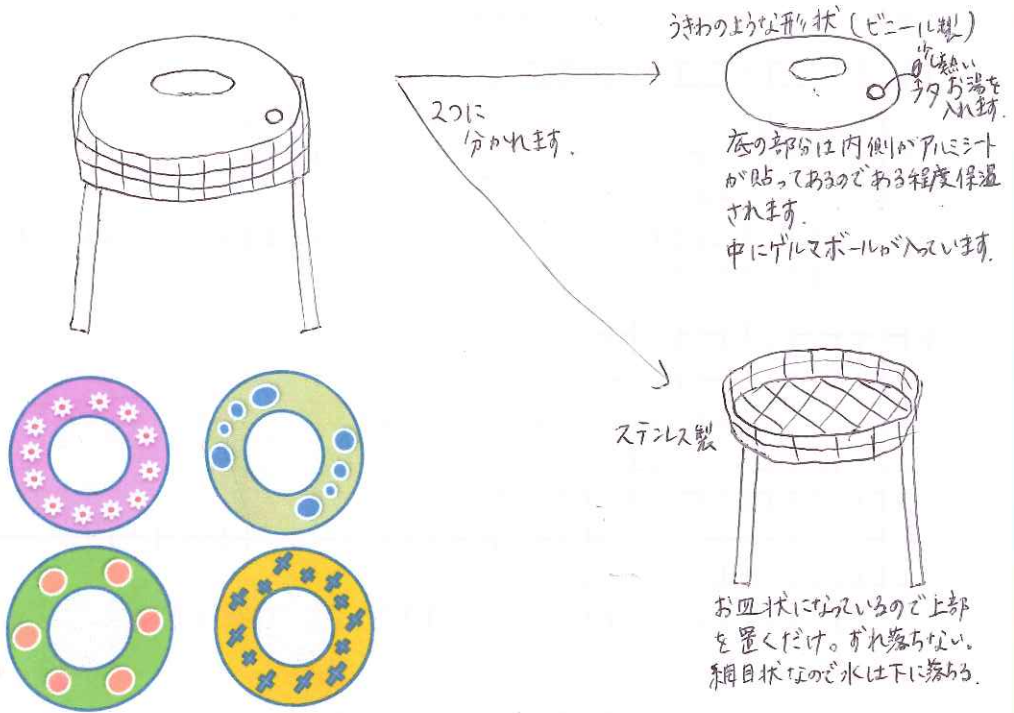 うきわのような形状(ビニール製)
少し熱い
お湯を
入れます.
フタ
2つに
分かれます.
底の部分は内側がアルミシート
が貼ってあるのである程度保温
されます.
中にゲルマボールが入っています.
ステンレス製
お皿状になっているので上部
を置くだけ。ずれ落ちない。
網目状なので水は下に落ちる.